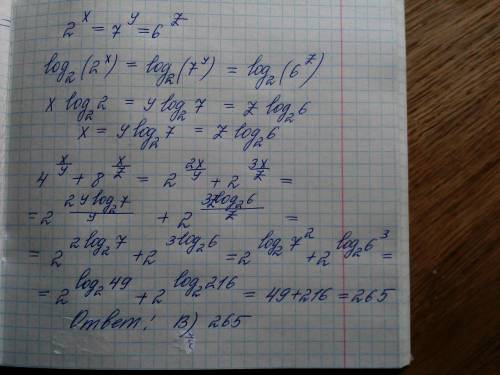 2^x = 7^y = 6^z
log₂(2^x) = log₂(7^y) = log₂(6^z)
x log₂2 = y log₂7 = z log₂6
x = y log₂7 = z log₂6
4^(x/y) + 8^(x/z) = 2^(2x/y) + 2^(3x/z) =
= 2^(2y log₂7/y) + 2^(3z log₂6/z) =
= 2^(2log₂7) + 2^(3log₂6) = 2^(log₂7²) + 2^(log₂6³) =
= 2^(log₂49) + 2^(log₂216) = 49+216 = 265
Ответ: В) 265